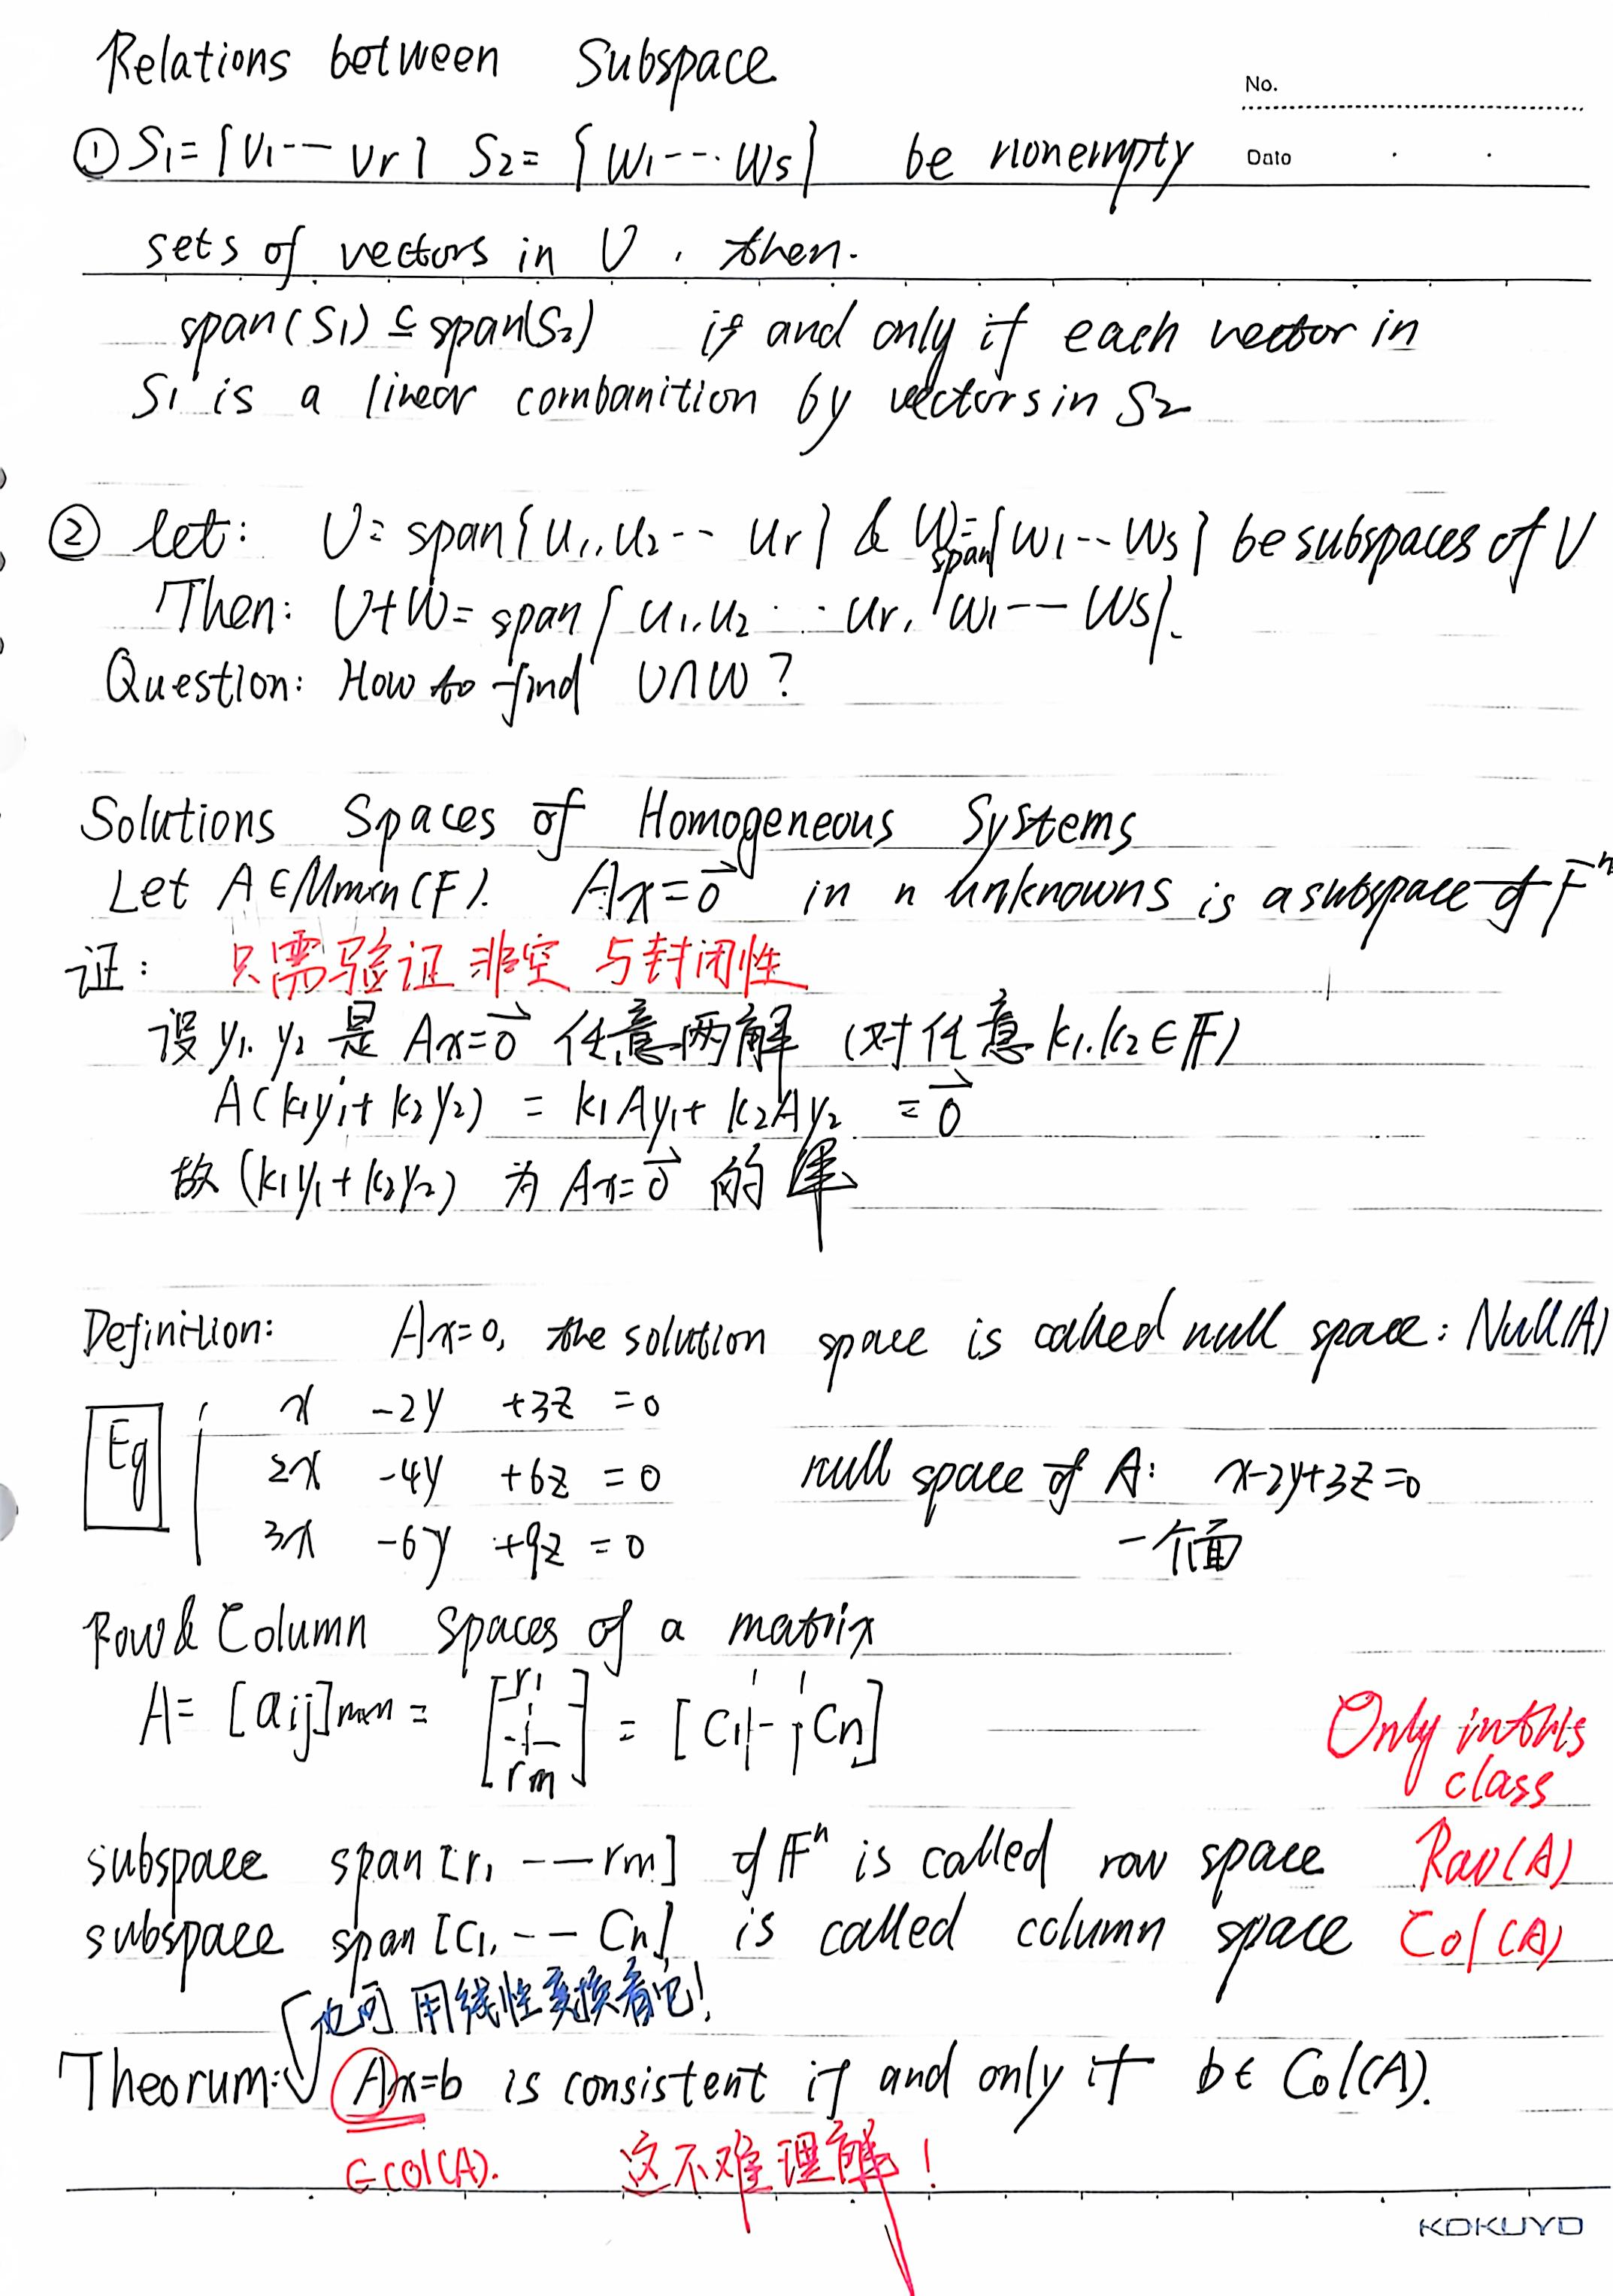 Relations between Subspace
No.
① S1={V1-- Vr} S2={W1--- Ws} be nonempty
Dato
sets of vectors in V, then.
span(S1)⊆span(S2) if and only if each vector in
S1 is a linear combanition by vectors in S2
② let: U=span{u1,u2-- ur} & W=span{w1--Ws} be subspaces of V
Then: U+W=span{u1,u2---ur, w1--Ws}.
Question: How to find U∩W?
Solutions Spaces of Homogeneous Systems
Let A∈Mmxn(F). Ax=0⃗ in n unknowns is a subspace of Fⁿ
证: 只需验证非空与封闭性
设y1.y2是Ax=0⃗任意两解 (对任意k1.k2∈F)
A(k1y1+k2y2) = k1Ay1+k2Ay2 =0⃗
故(k1y1+k2y2)为Ax=0⃗的解
Definition: Ax=0, the solution space is called null space: Null(A)
Eg x -2y +3z =0
2x -4y +6z =0 null space of A: x-2y+3z=0
3x -6y +9z =0 一个面
Row & Column Spaces of a matrix
A=[aij]mxn=[r1 rm]=[C1|-|Cn]
Only in this
class
subspace span[r1 ---rm] of Fⁿ is called row space Row(A)
subspace span[C1,--Cn] is called column space Col(A)
也可用线性变换看它!
Theorum: Ax=b is consistent if and only if b∈Col(A).
∈Col(A). 这不难理解!
KOKUYO